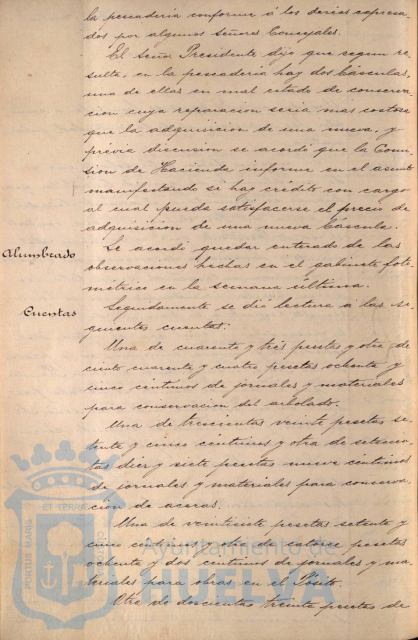 la pescadería conforme á los deseos expresa-
dos por algunos Señores Concejales.
El Señor Presidente dijo que segun re-
sulta, en la pescadería hay dos básculas,
una de ellas en mal estado de conserva-
cion cuya reparacion seria mas costosa
que la adquisicion de una nueva, y
previa discusion se acordó que la Comi-
sion de Hacienda informe en el asunto
manifestando si hay crédito con cargo
al cual pueda satisfacerse el precio de
adquisicion de una nueva báscula.
Alumbrado
Se acordó quedar enterado de las
observaciones hechas en el gabinete foto-
métrico en la semana última.
Cuentas
Seguidamente se dió lectura á las si-
guientes cuentas:
Una de cuarenta y tres pesetas y otra de
ciento cuarenta y cuatro pesetas ochenta y
cinco céntimos de jornales y materiales
para conservacion del arbolado.
Una de trescientas veinte pesetas se-
tenta y cinco céntimos y otra de setecien-
tas diez y siete pesetas nueve céntimos
de jornales y materiales para conserva-
cion de aceras.
Una de veintisiete pesetas setenta y
cinco céntimos y otra de catorce pesetas
ochenta y dos céntimos de jornales y ma-
teriales para obras en el Pósito.
Otra de doscientas treinta pesetas de
PORTUS MARIS
ET TERRAE
CUSTODIA
Ayuntamiento de
HUELVA